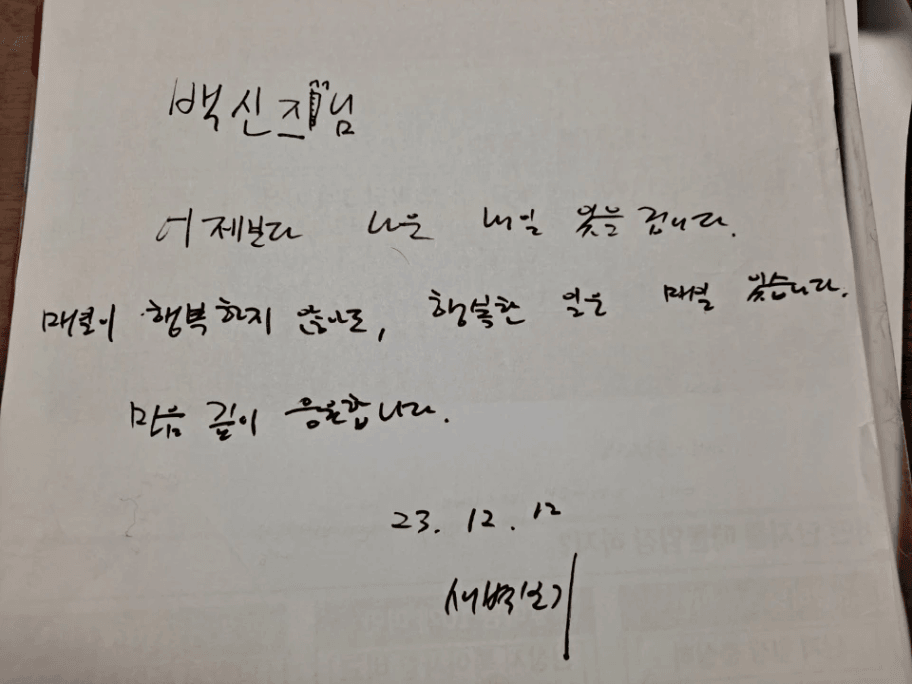 백신져님
어제보다 나은 내일 있을 겁니다.
매일이 행복하지 않아도, 행복한 일은 매일 있습니다.
마음 깊이 응원합니다.
23. 12. 12
새벽보기